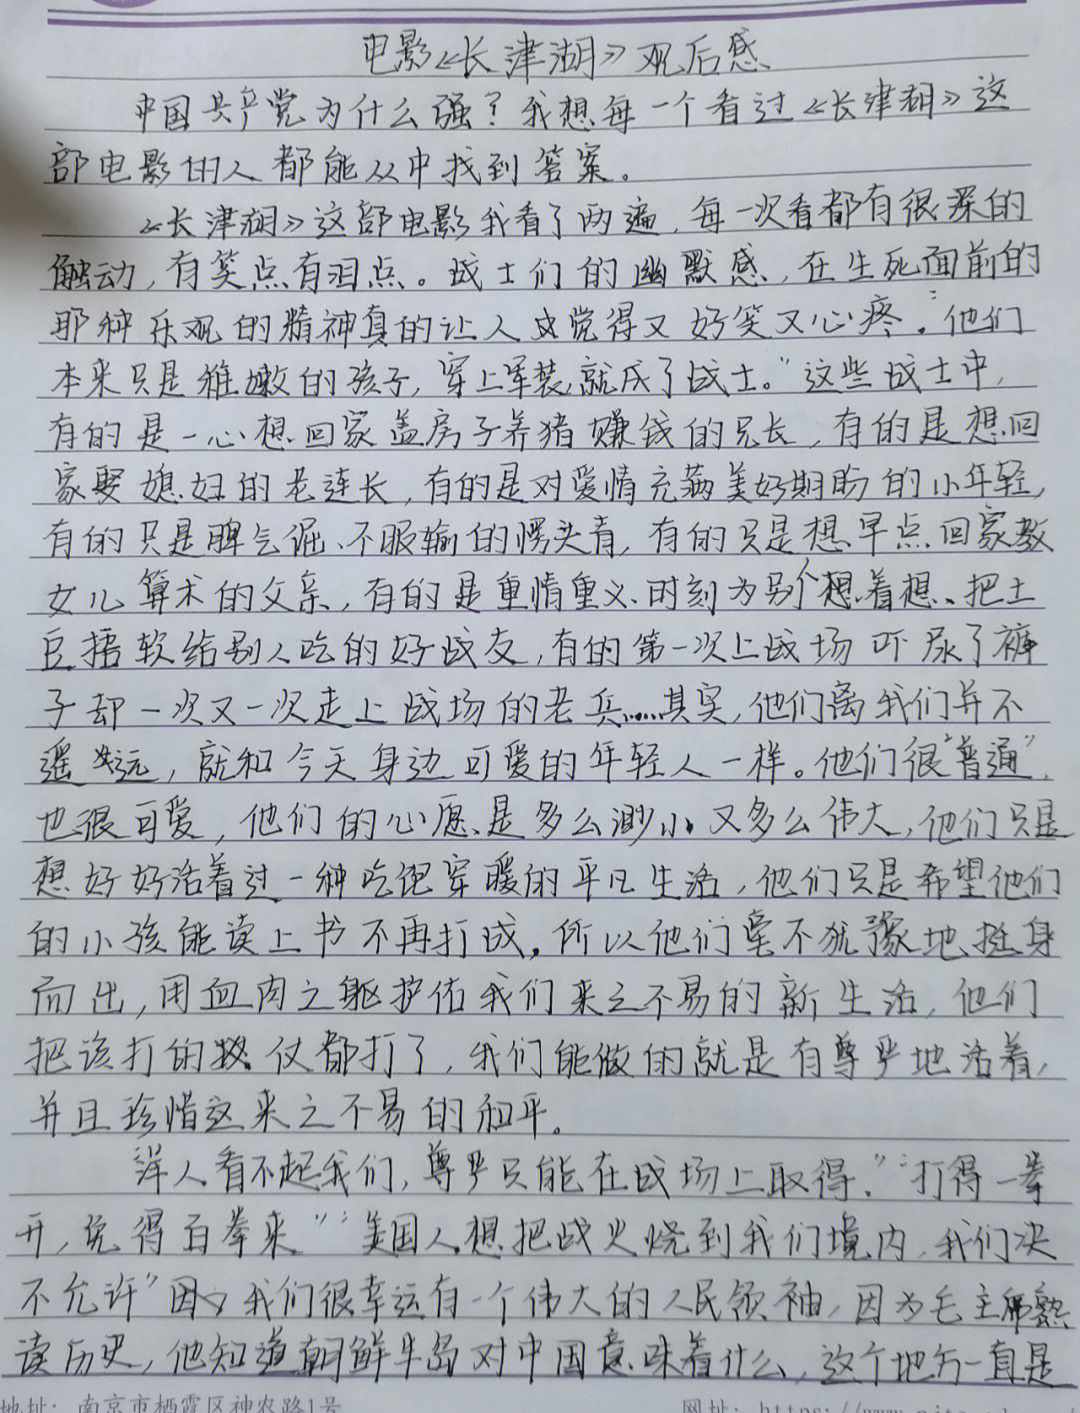 电影《长津湖》观后感
中国共产党为什么强？我想每一个看过《长津湖》这
部电影的人都能从中找到答案。
《长津湖》这部电影我看了两遍，每一次看都有很深的
触动，有笑点有泪点。战士们的幽默感，在生死面前的
那种乐观的精神真的让人觉得又好笑又心疼。“他们
本来只是稚嫩的孩子，穿上军装，就成了战士。”这些战士中，
有的是一心想回家盖房子养猪赚钱的兄长，有的是想回
家娶媳妇的老连长，有的是对爱情充满美好期盼的小年轻，
有的只是脾气倔、不服输的愣头青，有的只是想早点回家教
女儿算术的父亲，有的是重情重义、时刻为别个想着想、把土
豆捂软给别人吃的好战友，有的第一次上战场吓尿了裤
子却一次又一次走上战场的老兵……其实，他们离我们并不
遥远，就和今天身边可爱的年轻人一样。他们很“普通”，
也很可爱，他们的心愿是多么渺小又多么伟大，他们只是
想好好活着过一种吃饱穿暖的平凡生活，他们只是希望他们
的小孩能读上书不再打战，所以他们毫不犹豫地挺身
而出，用血肉之躯护佑我们来之不易的新生活，他们
把该打的仗都打了，我们能做的就是有尊严地活着，
并且珍惜这来之不易的和平。
洋人看不起我们，尊严只能在战场上取得，”“打得一拳
开，免得百拳来”“美国人想把战火烧到我们境内，我们决
不允许”因为我们很幸运有一个伟大的人民领袖，因为毛主席熟
读历史，他知道朝鲜半岛对中国意味着什么，这个地方一直是
地址：南京市栖霞区神农路1号
网址：https://www.